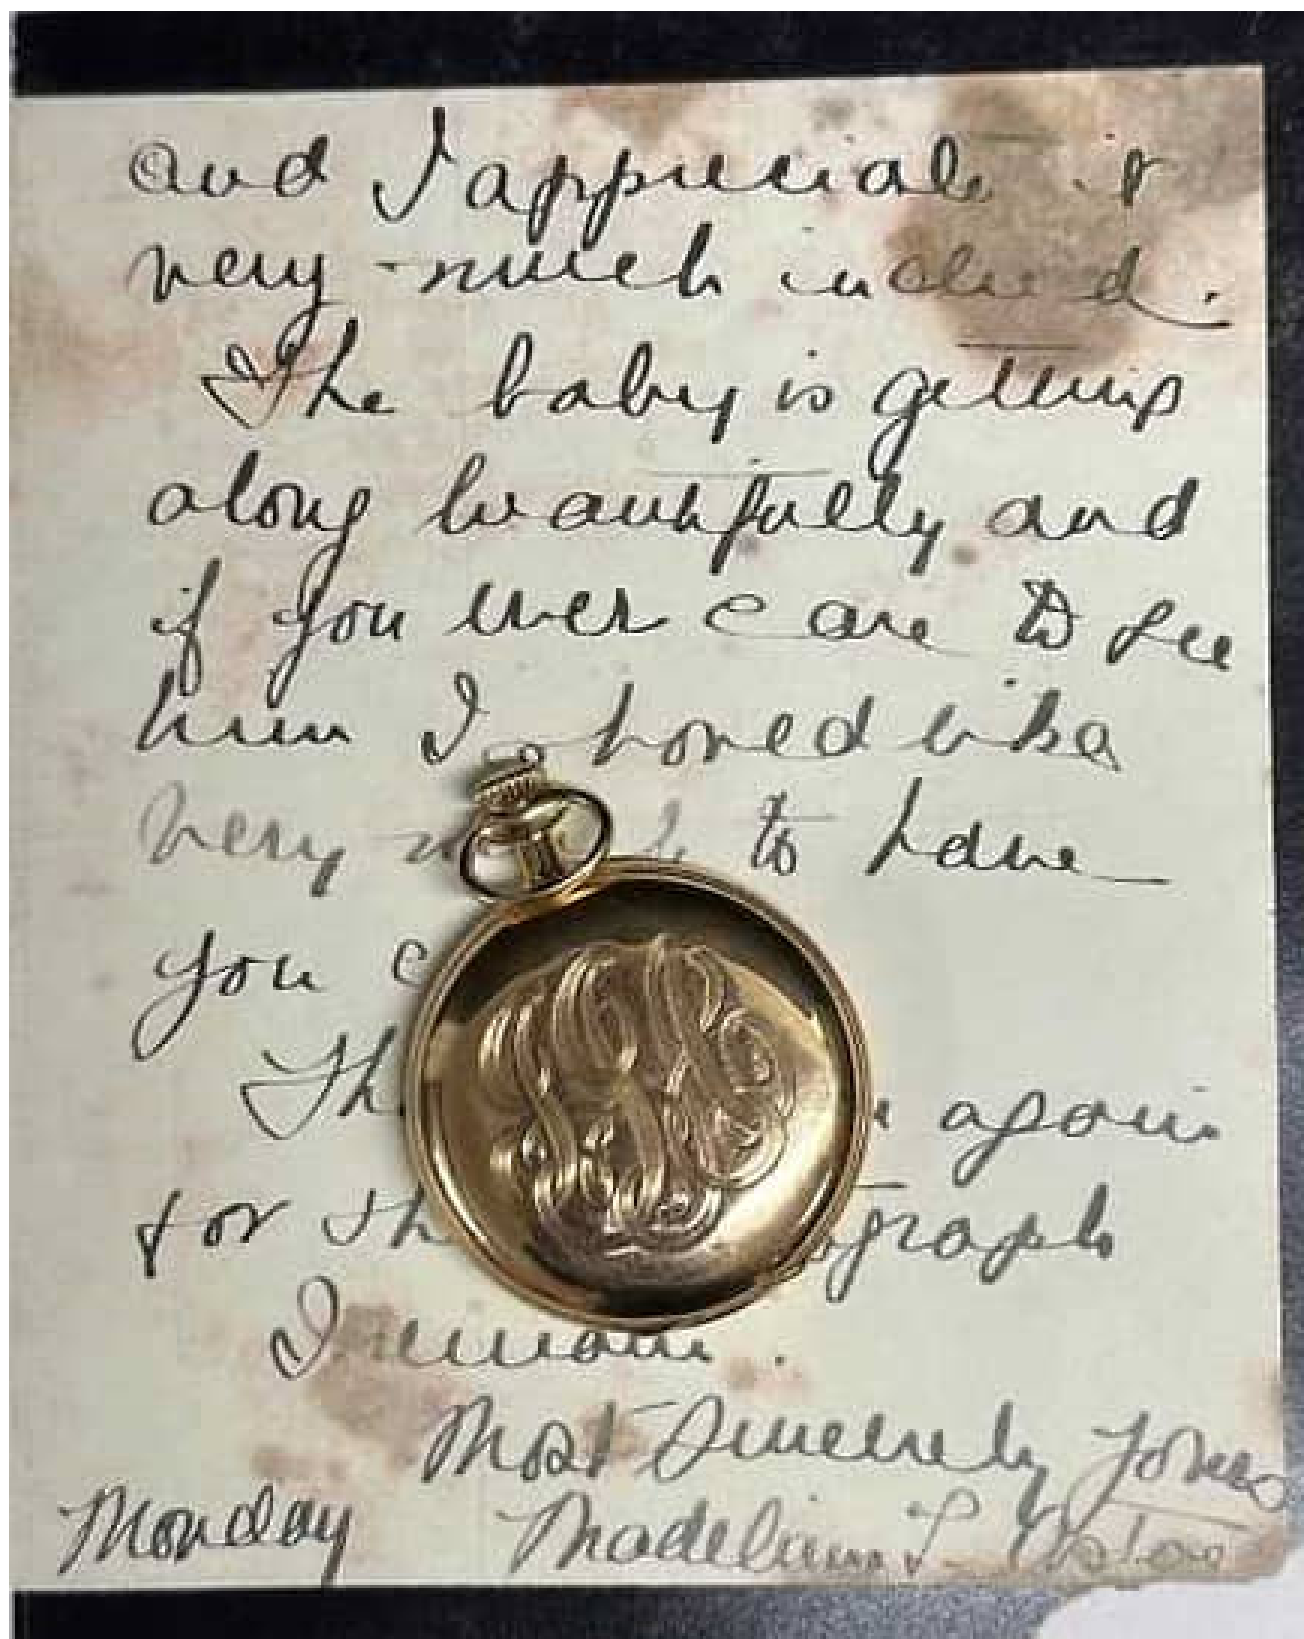 and I appreciate it
very much indeed.
The baby is getting
along beautifully and
if you ever care to see
him I should like
very to have
you
again
for
I remain.
Most Sincerely Yours
Monday Madeleine T. Astor